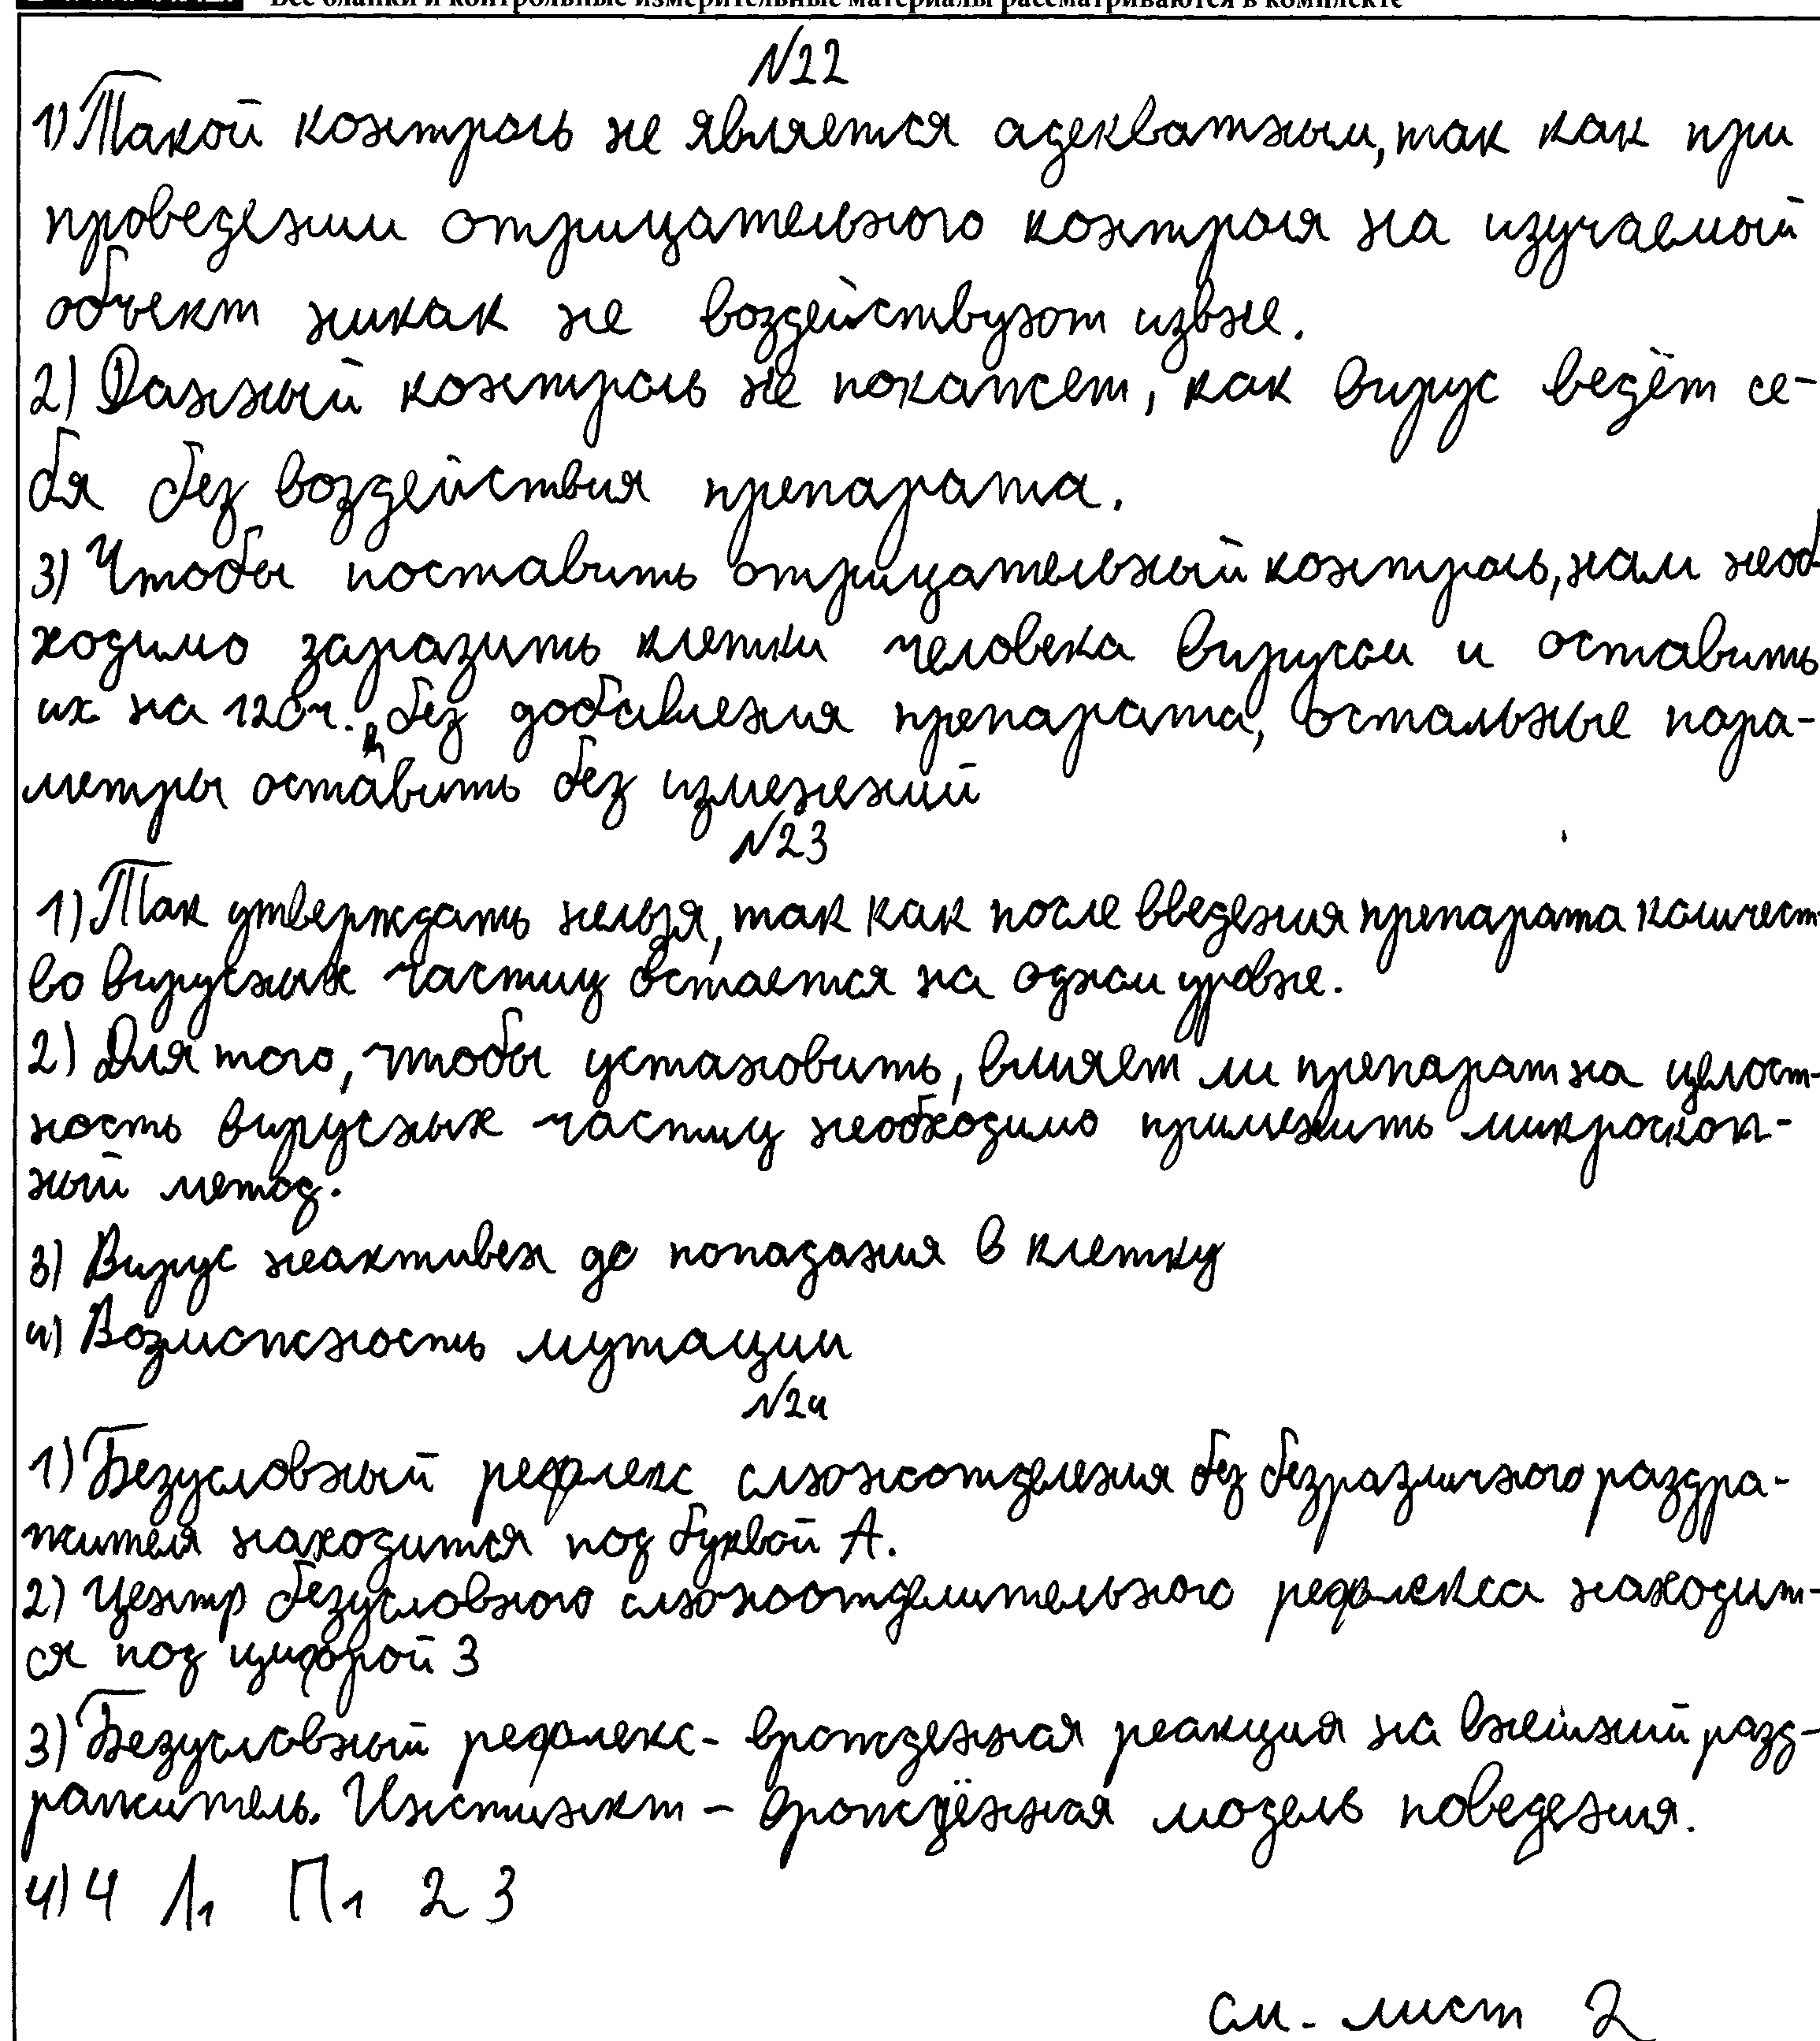 Все бланки и контрольные измерительные материалы рассматриваются в комплекте
№22
1) Такой контроль не является адекватным, так как при
проведении отрицательного контроля на изучаемый
объект никак не воздействуют извне.
2) Данный контроль не покажет, как вирус ведёт се-
бя без воздействия препарата.
3) Чтобы поставить отрицательный контроль, нам необ-
ходимо заразить клетки человека вирусом и оставить
их на 120ч. без добавления препарата, остальные пара-
метры оставить без изменений
№23
1) Так утверждать нельзя, так как после введения препарата количест-
во вирусных частиц остается на одном уровне.
2) Для того, чтобы установить, влияет ли препарат на целост-
ность вирусных частиц необходимо применить микроскоп-
ный метод.
3) Вирус неактивен до попадания в клетку
4) Возможность мутации
№24
1) Безусловный рефлекс слюноотделения без безразличного раздра-
жителя находится под буквой А.
2) Центр безусловного слюноотделительного рефлекса находит-
ся под цифрой 3
3) Безусловный рефлекс - врожденная реакция на внешний разд-
ражитель. Инстинкт - врождённая модель поведения.
4) 4 Л1 П1 2 3
см. лист 2